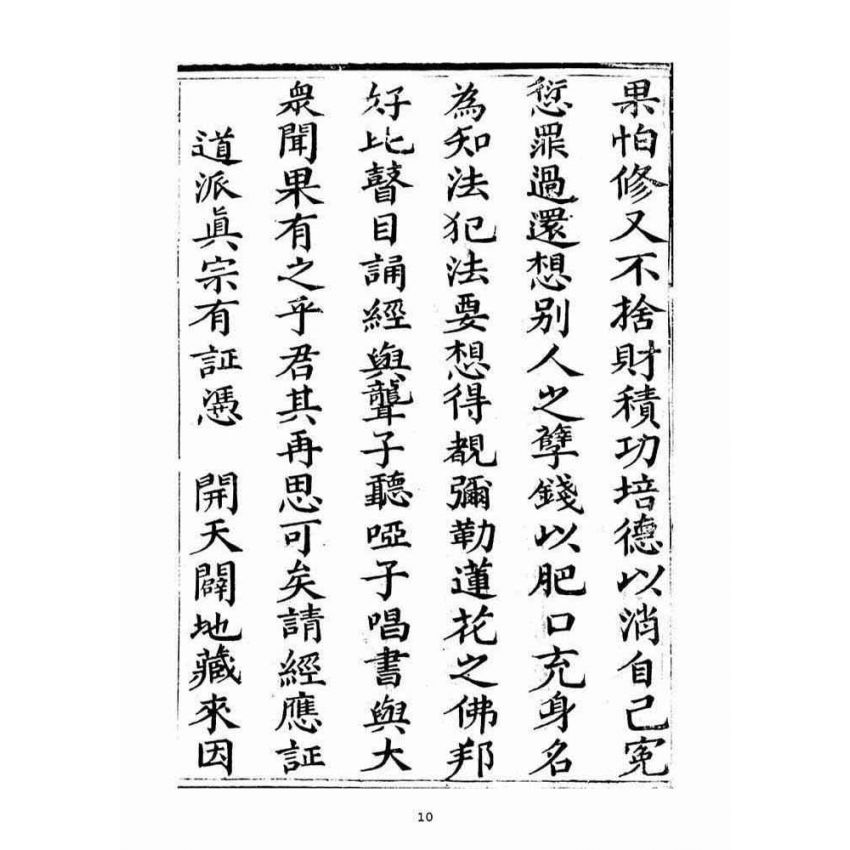 果怕修又不捨財積功培德以消自己冤
愆罪過還想别人之孽錢以肥口充身名
為知法犯法要想得覩彌勒蓮花之佛邦
好比瞽目誦經與聾子聽啞子唱書與大
衆聞果有之乎君其再思可矣請經應証
道派眞宗有証憑　開天闢地藏來因
10